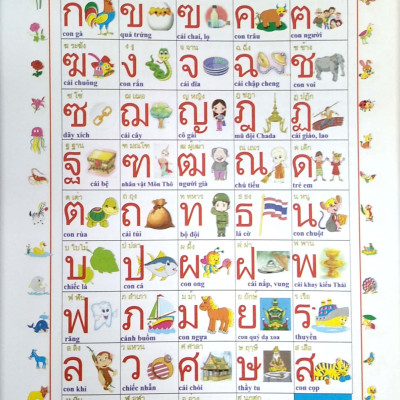 ก ข ฃ ค ฅ
con gà quả trứng cái chai, lọ con trâu con người
ฆ ระฆัง ง งู จ จาน ฉ ฉิ่ง ช ช้าง
ฆ ง จ ฉ ช
cái chuông con rắn cái dĩa cái chập cheng con voi
ซ โซ่ ฌ เฌอ ญ หญิง ฎ ชฎา ฏ ปฏัก
ซ ฌ ญ ฎ ฏ
dây xích cái cây cô gái mũ đội Chada cái giáo, lao
ฐ ฐาน ฑ มณโฑ ฒ ผู้เฒ่า ณ เณร ด เด็ก
ฐ ฑ ฒ ณ ด
cái bệ nhân vật Môn Thô người già chú tiểu trẻ em
ต เต่า ถ ถุง ท ทหาร ธ ธง น หนู
ต ถ ท ธ น
con rùa cái túi bộ đội lá cờ con chuột
บ ใบไม้ ป ปลา ผ ผึ้ง ฝ ฝา พ พาน
บ ป ผ ฝ พ
chiếc lá con cá con ong cái nắp, vung cái khay kiểu Thái
ฟ ฟัน ภ สำเภา ม ม้า ย ยักษ์ ร เรือ
ฟ ภ ม ย ร
răng cánh buồm con ngựa con quỷ dạ xoa thuyền
ล ลิง ว แหวน ศ ศาลา ษ ฤๅษี ส เสือ
ล ว ศ ษ ส
con khỉ chiếc nhẫn cái chòi thầy tu con cọp